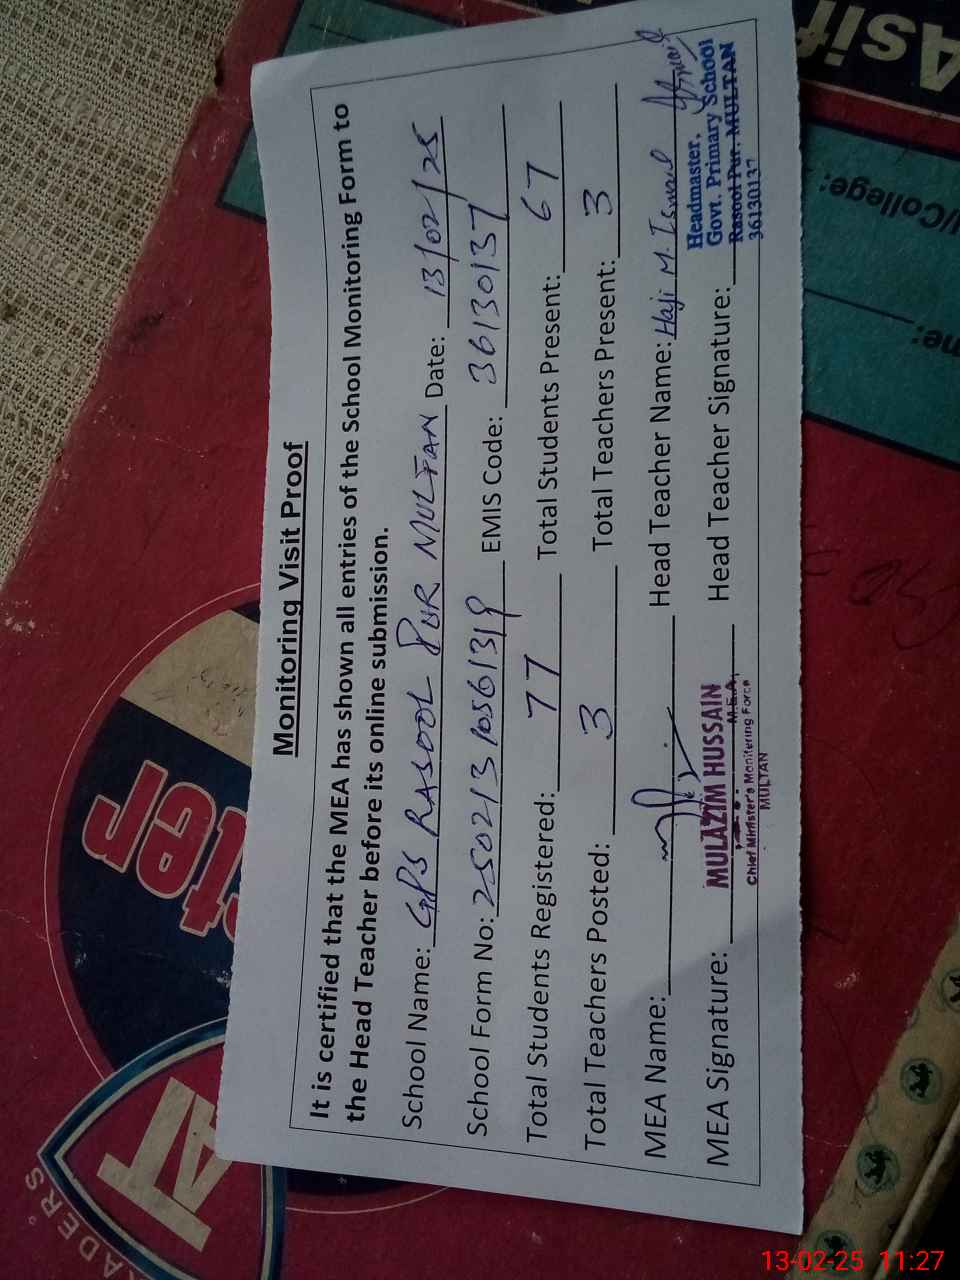 Monitoring Visit Proof
It is certified that the MEA has shown all entries of the School Monitoring Form to
the Head Teacher before its online submission.
School Name: GPS RASOOL PUR MULTAN Date: 13/02/25
School Form No: 250213 10561319 EMIS Code: 36130137
Total Students Registered: 77 Total Students Present: 67
Total Teachers Posted: 3 Total Teachers Present: 3
MEA Name: Head Teacher Name: Haji M. Ismail
MEA Signature: Head Teacher Signature:
MULAZIM HUSSAIN
M.E.A,
Chief Minister's Monitering Force
MULTAN
Headmaster,
Govt. Primary School
Rasool Pur, MULTAN
36130137
Asif
/College:
me:
ter
AT
RADERS
13-02-25 11:27